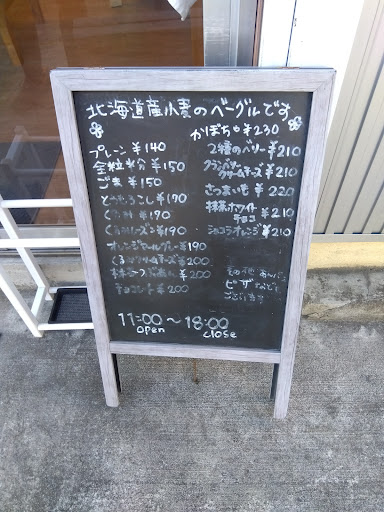 北海道産小麦のベーグルです
かぼちゃ ¥230
プレーン ¥140
全粒粉 ¥150
ごま ¥150
とうもろこし ¥190
くるみ ¥190
くるみレーズン ¥190
オレンジ ¥190
くるみクリームチーズ ¥200
¥200
チョコレート ¥200
2種のベリー ¥210
クランベリー
クリームチーズ ¥210
さつまいも ¥220
抹茶ホワイト
チョコ ¥210
ショコラオレンジ ¥210
その他 あんパン
ピザなども
ございます
11:00～18:00
open close